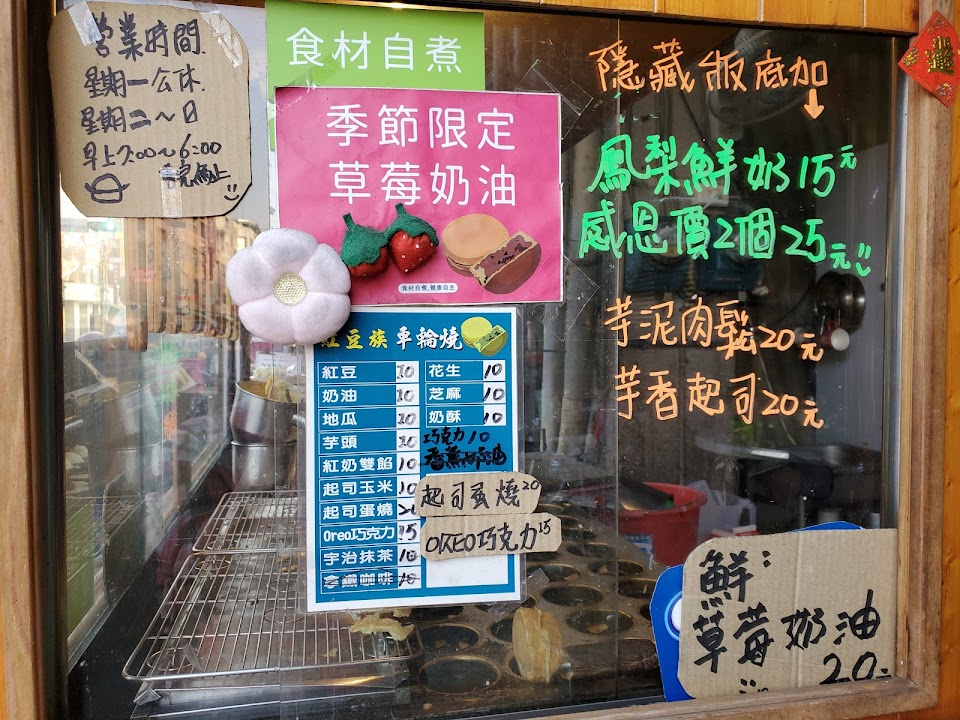 營業時間
星期一公休
星期二~日
早上7:00~6:00
食材自煮
季節限定
草莓奶油
食材自煮,健康自主
紅豆族 車輪燒
紅豆 10
奶油 10
地瓜 10
芋頭 10
紅奶雙餡 10
起司玉米 10
起司蛋燒 20
Oreo巧克力 15
宇治抹茶 10
拿鐵咖啡 10
花生 10
芝麻 10
奶酥 10
巧克力 10
起司蛋燒 20
OREO巧克力 15
隱藏版底加↓
鳳梨鮮奶15元
感恩價2個25元
芋泥肉鬆20元
芋香起司20元
鮮
草莓奶油
20元